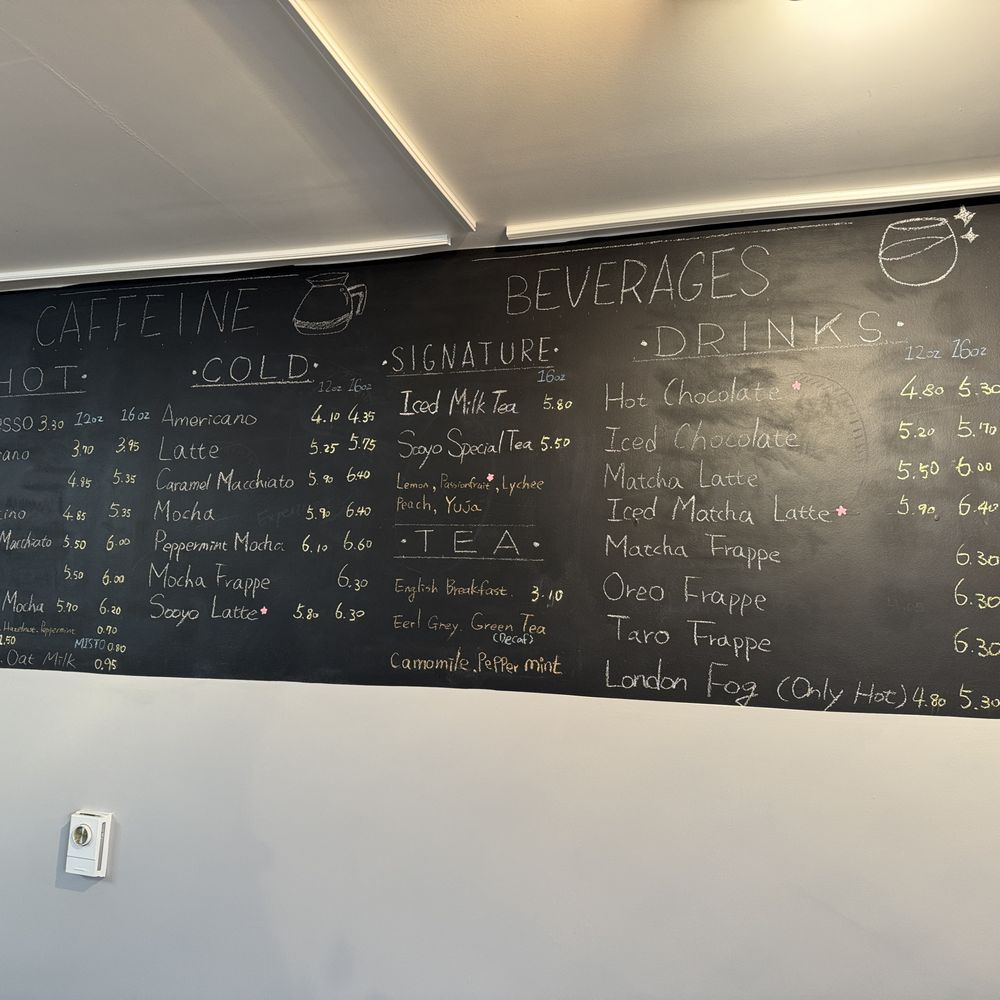 CAFFEINE
HOT
ESSO 3.30 12oz 16oz
ano 3.70 3.95
4.85 5.35
ino 4.85 5.35
Macchiato 5.50 6.00
5.50 6.00
Mocha 5.70 6.20
Hazelnut. Peppermint 0.70
1.50 MISTO 0.80
. Oat Milk 0.95
·COLD·
12oz 16oz
Americano 4.10 4.35
Latte 5.25 5.75
Caramel Macchiato 5.90 6.40
Mocha 5.90 6.40
Peppermint Mocha 6.10 6.60
Mocha Frappe 6.30
Sooyo Latte 5.80 6.30
BEVERAGES
·SIGNATURE·
16oz
Iced Milk Tea 5.80
Sooyo Special Tea 5.50
Lemon, Passionfruit, Lychee
Peach, Yuja
·TEA·
English Breakfast. 3.10
Eerl Grey. Green Tea
(Decaf)
Camomile. Peppermint
·DRINKS·
12oz 16oz
Hot Chocolate 4.80 5.30
Iced Chocolate 5.20 5.70
Matcha Latte 5.50 6.00
Iced Matcha Latte 5.90 6.40
Matcha Frappe 6.30
Oreo Frappe 6.30
Taro Frappe 6.30
London Fog (Only Hot) 4.80 5.30